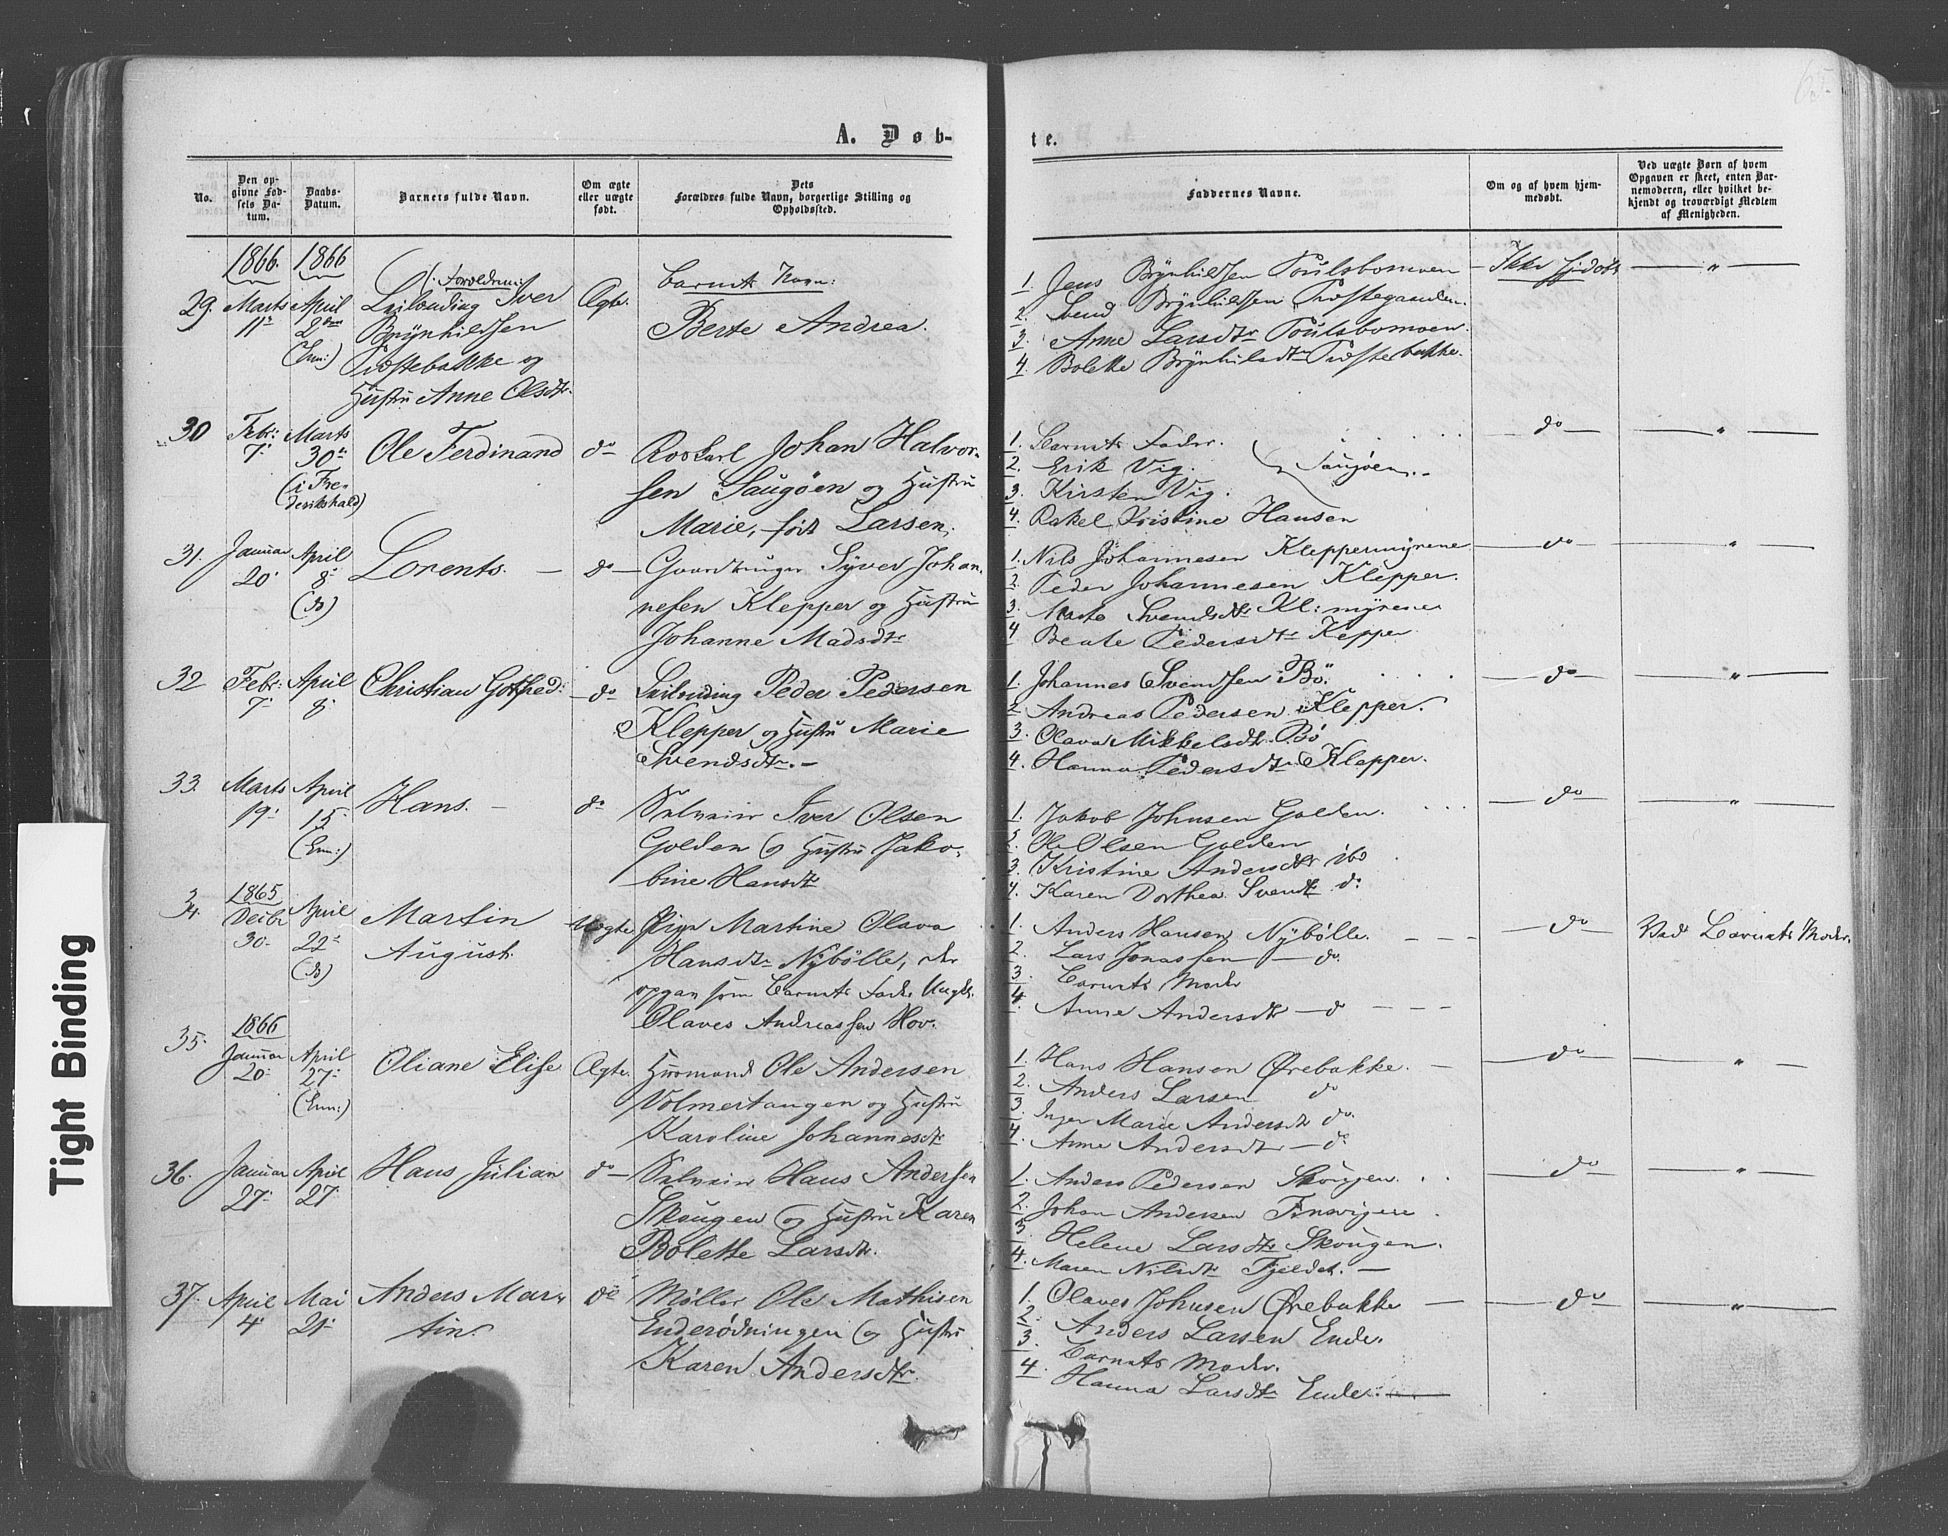 65.
A. Døb-
te.
No.
Den op-
givne Fød-
sels Da-
tum.
Daabs-
Datum.
Barnets fulde Navn.
Om ægte
eller uægte
født.
Dets
Forældres fulde Navn, borgerlige Stilling og
Opholdssted.
Faddernes Navne.
Om og af hvem hjem-
medøbt.
Ved uægte Børn af hvem
Opgaven er skeet, enten Bar-
nemoderen, eller hvilket be-
kjendt og troværdigt Medlem
af Menigheden.
1866. 1866
29. Marts 11te April 2den (Enn:)
(: Forældrene:
Leilænding Iver
Brynhildsen
Præstebakke og
Hustru Anne Olsdtr.
Ægte.
Barnets Navn:
Berte Andrea.
1. Jens Brynhildsen Poulsbomoen
2. Svend Brynhildsen Præstegaarden.
3. Anne Larsdtr Poulsbomoen.
4. Bolette Brynhilsdtr Præstebakke.
Ikke hjdøbt — " —
30 Febr: 7. Marts 30te (i Fre-
derikshald)
Ole Ferdinand
do
Johan Halvor-
sen Saugøen og Hustru
Marie, født Larsen.
1. Barnets Fader.
2. Erik Vig.
3. Kirsten Vig.
Saugøen.
4. Rakel Kristine Hansen
do — " —
31. Januar 20. April 8. (B)
Lorents. —
do — Gaardbruger Syver Johan-
nesen Klepper og Hustru
Johanne Madsdtr
1. Nils Johannesen Kleppermyrene
2. Peder Johannesen Klepper.
3. Marte Svendsdtr Kl: myrene
4. Beate Pedersdtr Kepper
do — " —
32 Febr: 7. April 8.
Christian Gotfred:
do
Leilænding Peder Pedersen
Klepper og Hustru Marie
Svendsdtr. —
1. Johannes Svendsen Bö.
2. Andreas Pedersen Klepper.
3. Olava Mikkelsdtr Bö
4. Hanna Pedersdtr Klepper.
do — " —
33. Marts 19. April 15. (Enn:)
Hans. —
do
Selveier Iver Olsen
Golden og Hustru Jako-
bine Hansdtr
1. Jakob Johnsen Golden.
2. Ole Olsen Golden
3. Kristine Andersdtr ibd
4. Karen Dorthea Svendtr do
do — " —
1865
34. Decbr 30. April 22. (B)
Martin
August.
Uægte.
Pige Martine Olava
Hansdtr Nybölle, der
opgav som Barnets Fader Ungk.
Olaves Andreassen Hov.
1. Anders Hansen Nybölle.
2. Lars Jonassen — do.
3. Barnets Moder
4. Anne Andersdtr — do
do
Ved Barnets Moder.
1866
35. Januar 20. April 27. (Enn:)
Oliane Elise
Ægte.
Husmand Ole Andersen
Volmertangen og Hustru
Karoline Johannesdtr
1. Hans Hansen Ørebakke.
2. Anders Larsen do
3. Inger Marie Andersdtr do.
4. Anne Andersdtr — do
do — " —
36. Januar 27. April 27.
Hans Julian
do
Selveier Hans Andersen
Skougen og Hustru Karen
Bolette Larsdtr.
1. Anders Pedersen Skougen.
2. Johan Andersen
3. Helene Larsdtr Skougen.
4. Maren Nilsdtr Fjeldet. —
do — " —
37. April 4. Mai 21.
Anders Mar-
tin.
do
Møller Ole Mathisen
Enderödningen og Hustru
Karen Andersdtr.
1. Olaves Johnsen Ørebakke
2. Anders Larsen Ende.
3. Barnets Moder.
4. Hanna Larsdtr Ende.
do — " —
Tight Binding